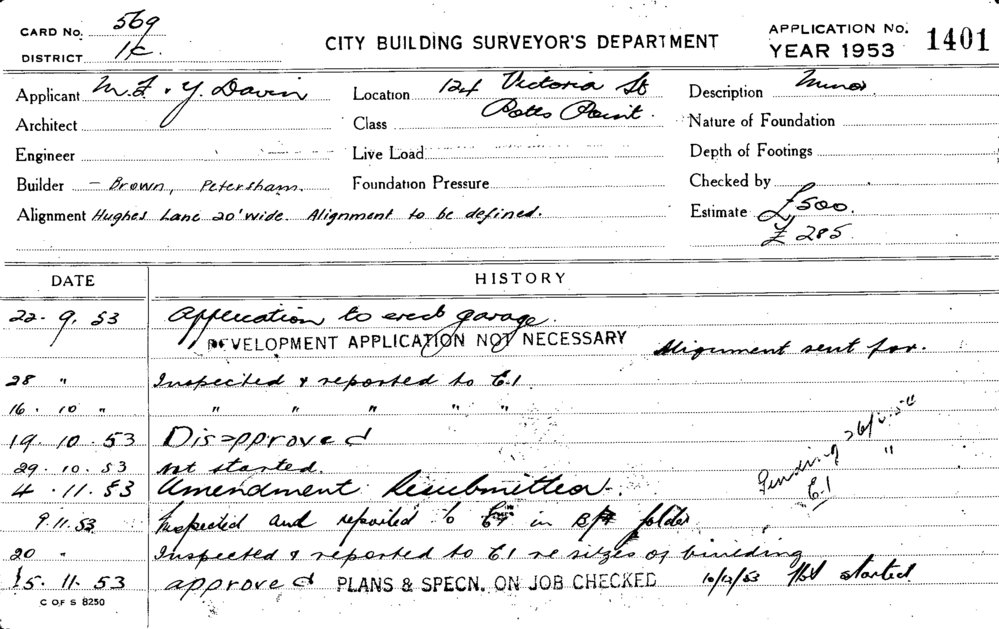 CARD No. 569
DISTRICT 1C.
CITY BUILDING SURVEYOR'S DEPARTMENT
APPLICATION No. 1401
YEAR 1953
Applicant M. F. & Y. Davin Location 124 Victoria St Description Minor
Architect Class Potts Point. Nature of Foundation
Engineer Live Load Depth of Footings
Builder - Brown, Petersham. Foundation Pressure Checked by
Alignment Hughes Lane 20' wide. Alignment to be defined. Estimate £500.
£ 285
DATE HISTORY
22. 9. 53 Application to erect garage.
DEVELOPMENT APPLICATION NOT NECESSARY Alignment sent for.
28 " Inspected & reported to E.1.
16. 10 " " " " " "
19. 10. 53 Disapproved
29. 10. 53 Not started.
4. 11. 53 Amendment Resubmitted.
Pending "
E.1
9.11.53 Inspected and reported to in folder
20 " Inspected & reported to E1 re sizes of building
5. 11. 53 approved PLANS & SPECN. ON JOB CHECKED 10/12/53 Not started
C OF S 8250